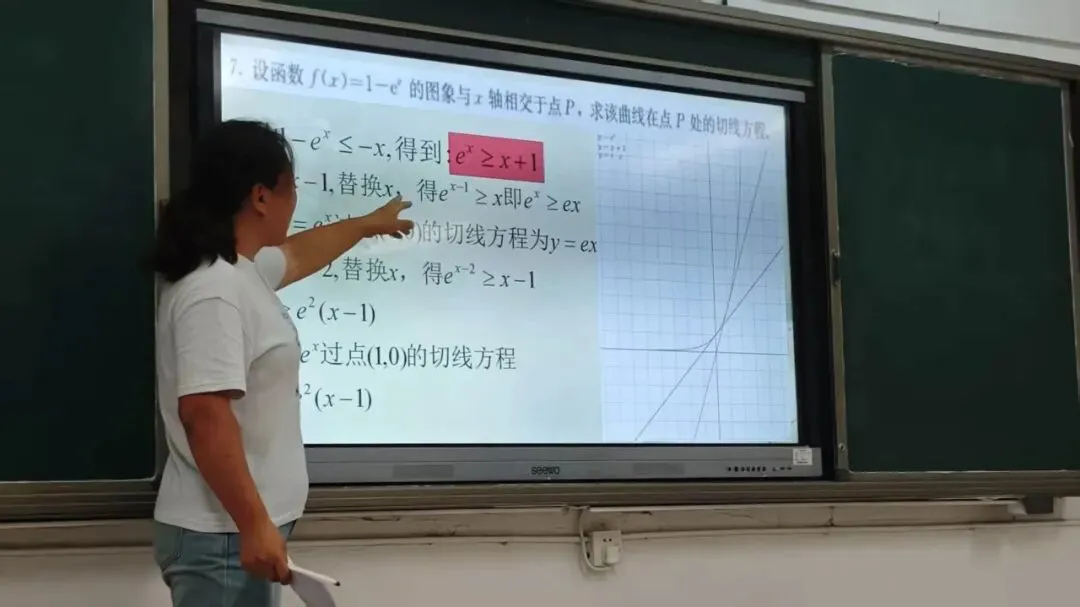 7. 设函数 f(x)=1-eˣ 的图象与 x 轴相交于点 P, 求该曲线在点 P 处的切线方程.
-eˣ ≤ -x, 得到: eˣ ≥ x+1
-1, 替换x, 得eˣ⁻¹ ≥ x即eˣ ≥ ex
= eˣ 0)的切线方程为y = ex
2, 替换x, 得eˣ⁻² ≥ x-1
e²(x-1)
eˣ过点(1,0)的切线方程
²(x-1)
seewo